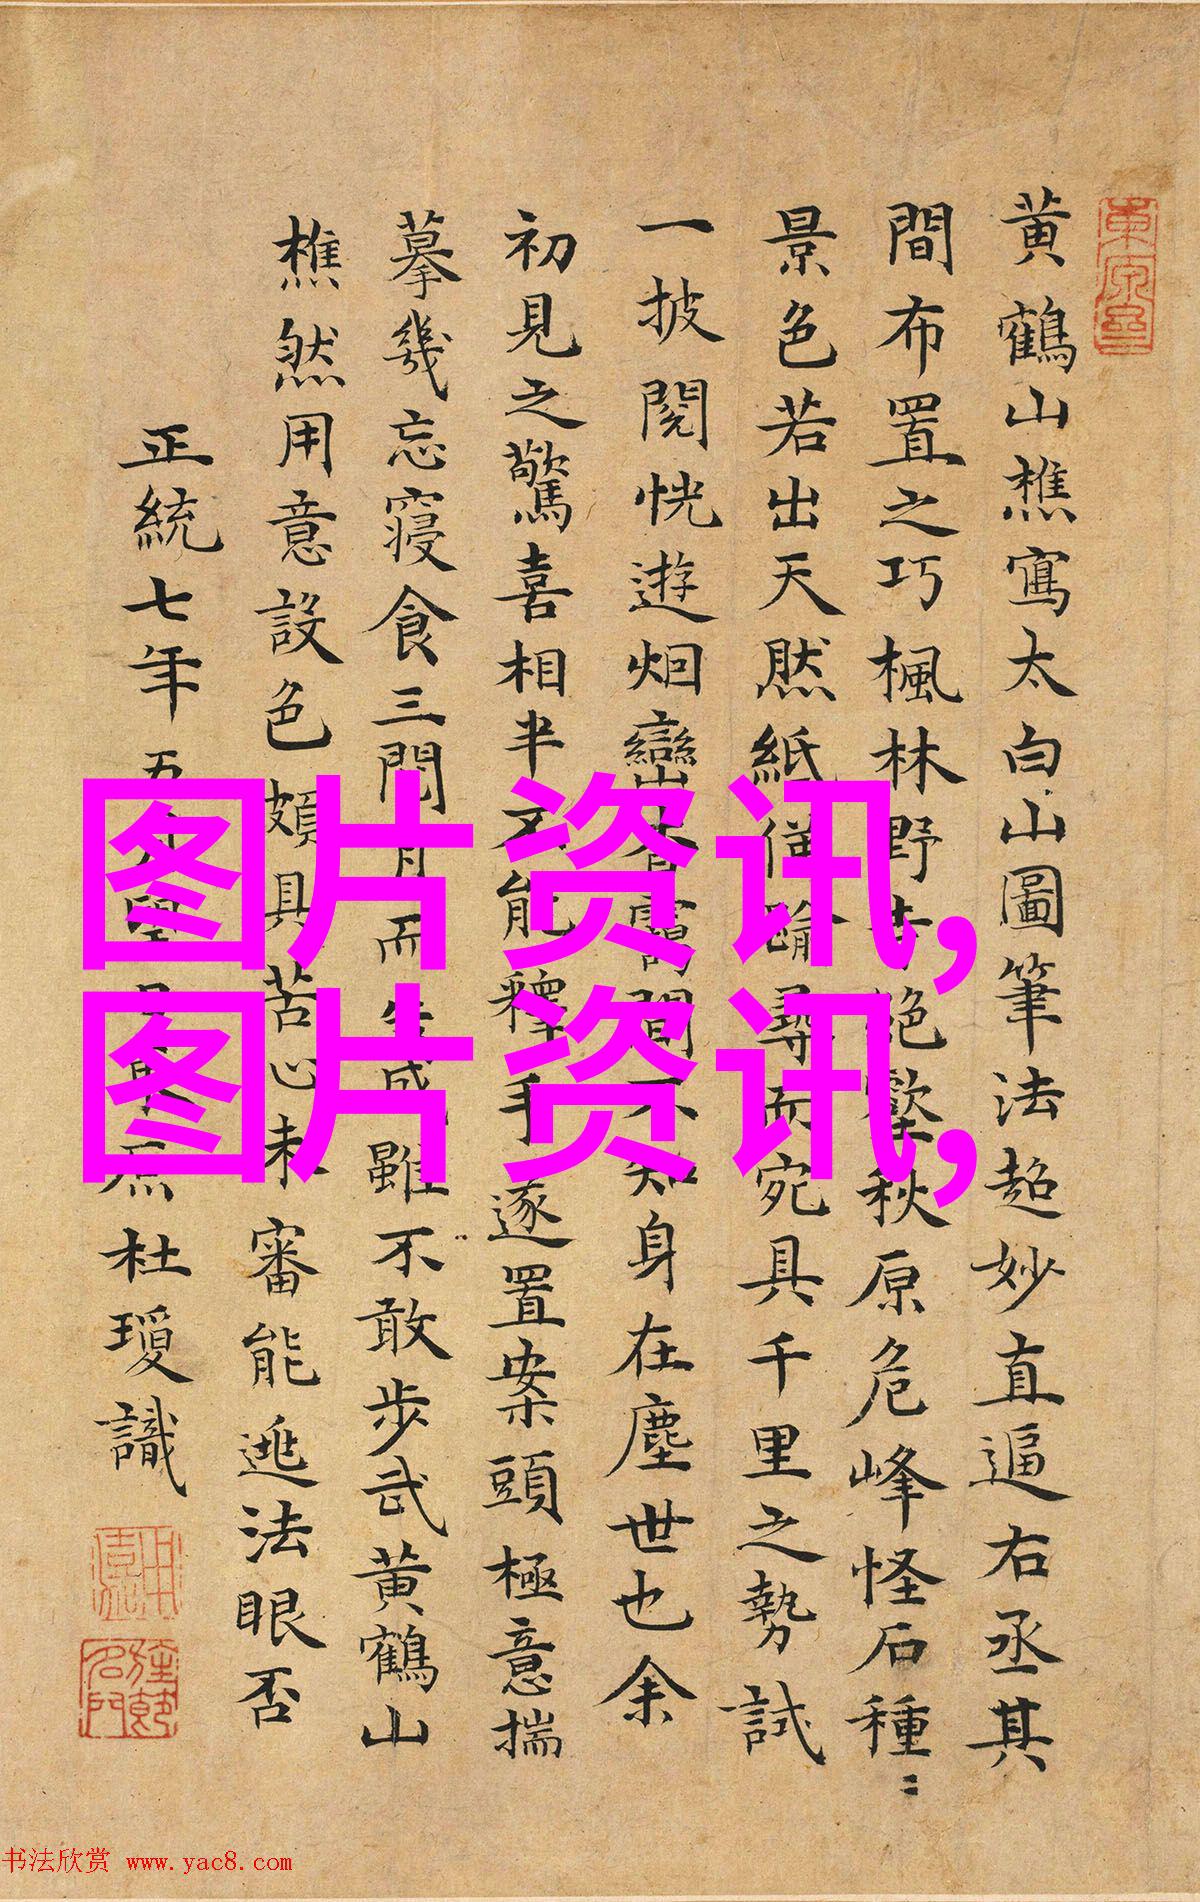 黄鶴山樵寫太白山圖筆法超妙直逼右丞其
間布置之巧楓林野絶壑秋原危峰怪石種:
景色若出天然紙僅踰尋而宛具千里之勢試
一披閱恍遊烟巒間不知身在塵世也余
初見之驚喜相半不能釋手遂置案頭極意揣
摹幾忘寢食三閱月而成雖不敢步武黄鶴山
樵然用意設色頗具苦心未審能逃法眼否
正統七年五東原杜瓊識
图片资讯,
图片资讯,
书法欣赏 www.yac8.com